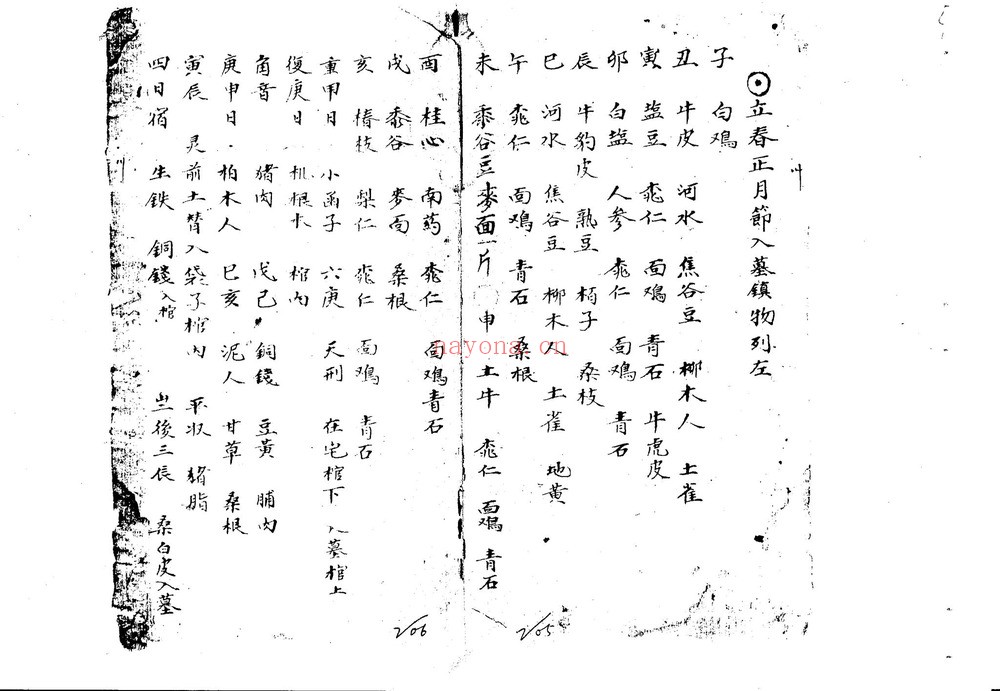 立春正月節入墓鎮物列左
子 白鳮
丑 牛皮 河水 焦谷豆 柳木人 土雀
寅 盐豆 桃仁 面鳮 青石 牛虎皮
卯 白盐 人参 桃仁 面鳮 青石
辰 牛豹皮 熟豆 栢子 桑枝
巳 河水 焦谷豆 柳木人 土雀 地黄
午 桃仁 面鳮 青石 桑根
未 黍谷豆麥面一片 申 土牛 桃仁 面鳮 青石
酉 桂心 南药 桃仁 面鳮青石
戌 黍谷 麥面 桑根
亥 椿枝 梨仁 桃仁 面鳮 青石
重甲日 小函子 六庚 天刑 在宅棺下 入墓棺上
復庚日 棺内
角音 猪肉 戊己 銅錢 豆黃 脯肉
庚申日 柏木人 巳亥 泥人 甘草 桑根
寅辰 灵前土 入袋子棺内 平収 猪脂
四日宿 生鉄 銅錢入棺 後三辰 桑白皮入墓
205
206
nayona.cn